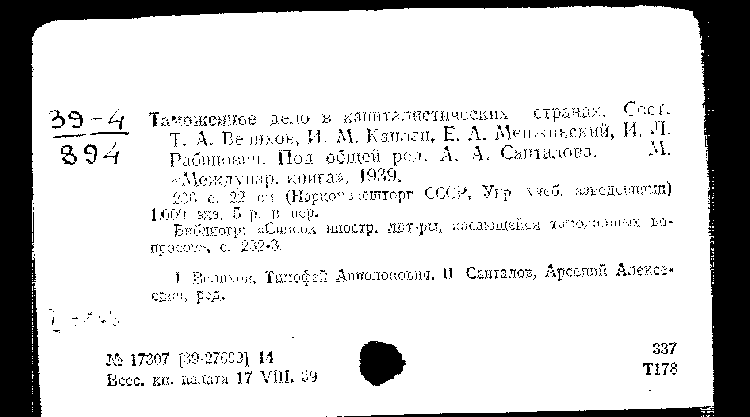 39-4
894
Таможенное дело в капиталистических странах. Сост.
Т. А. Велихов, И. М. Каплан, Е. А. Менжинский, И. Л.
Рабинович. Под общей ред. А. А. Санталова. М.
«Междунар. книга», 1939.
с. 22 см (Наркомвнешторг СССР, Упр. учеб. заведениями)
экз. 5 р. в пер.
Библиогр.: «Список иностр. лит-ры, касающейся таможенных во-
просов», с. 232-3.
I Велихов, Тимофей II Санталов, Арсений Алексе-
евич, ред.
№ 17307 [39-27609] 14
Всес. кн. палата 17 VIII. 39
337
Т178